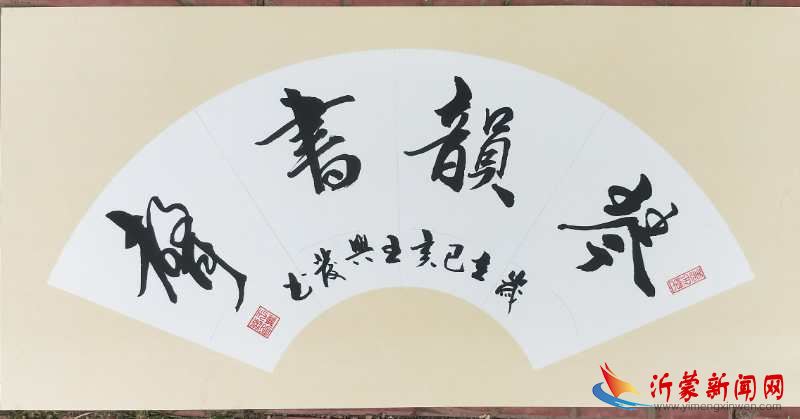 茶韻書
歲在己亥王興發书
沂蒙新闻网
www.yimengxinwen.com